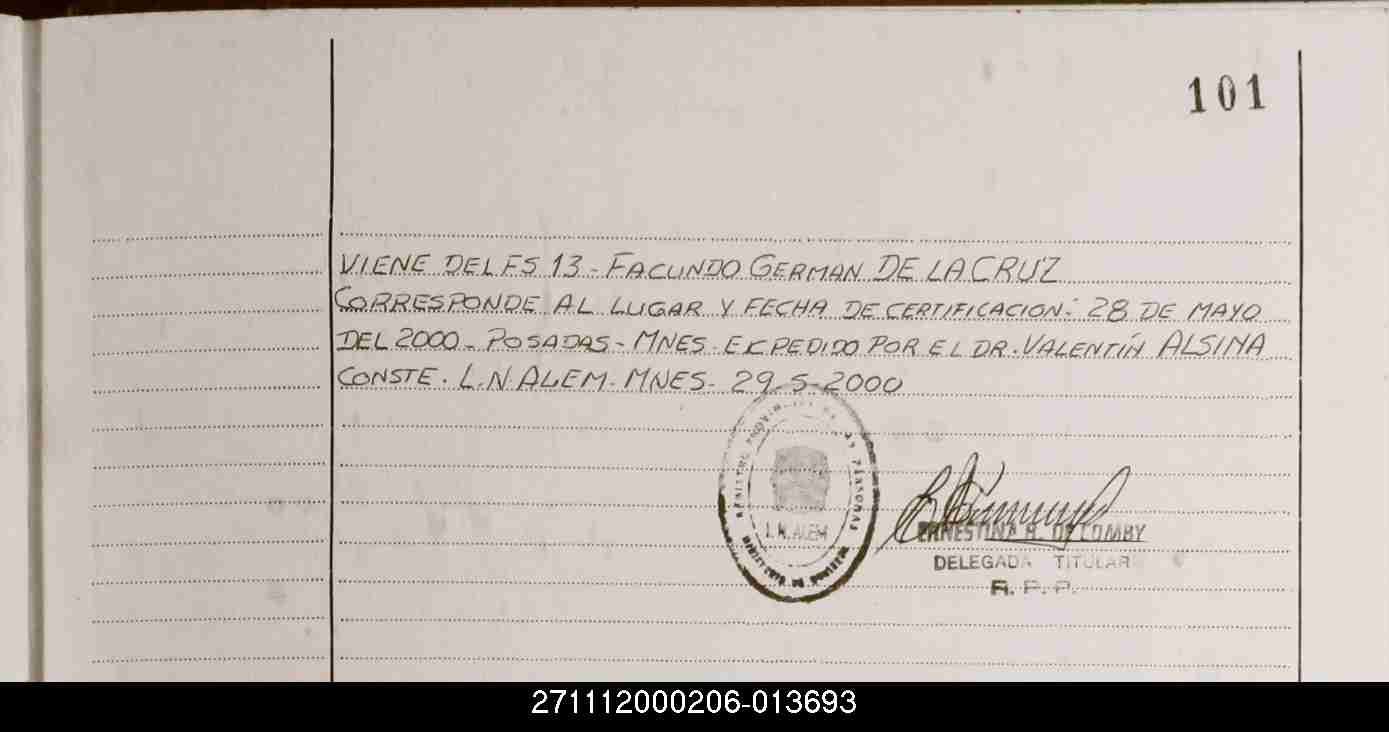 101
VIENE DEL FS 13 - FACUNDO GERMAN DE LA CRUZ
CORRESPONDE AL LUGAR Y FECHA DE CERTIFICACION: 28 DE MAYO
DEL 2000 - POSADAS - MNES. EXPEDIDO POR EL DR. VALENTÍN ALSINA
CONSTE. L.N ALEM. MNES - 29-5-2000
REGISTRO PROVINCIAL DE LAS PERSONAS
L.N. ALEM
ERNESTINA R. DE LOMBY
DELEGADA TITULAR
R. P. P.
271112000206-013693